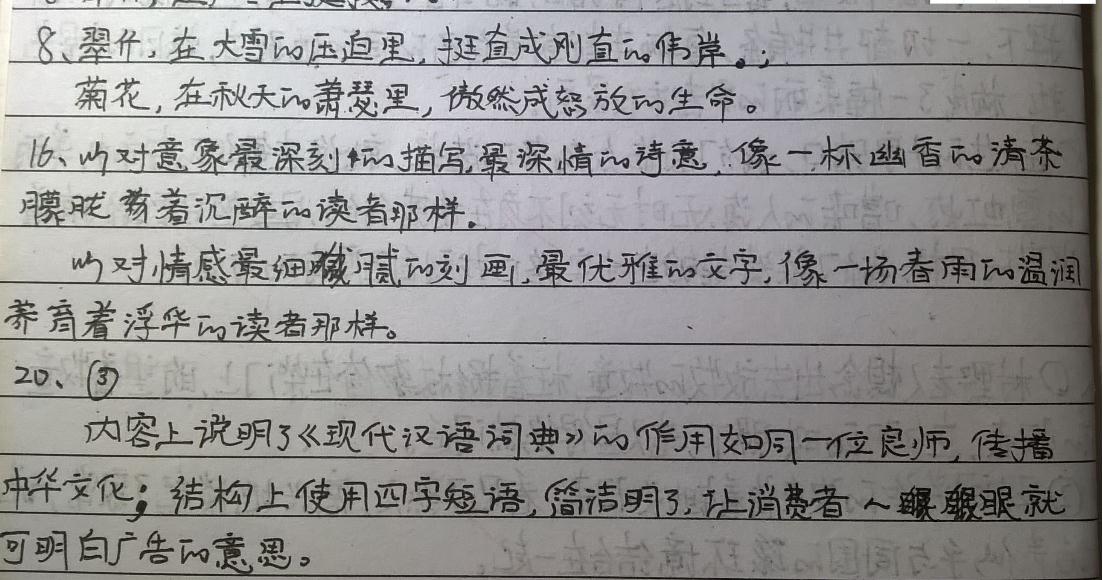 8、翠竹，在大雪的压迫里，挺直成刚直的伟岸。；
菊花，在秋天的萧瑟里，傲然成怒放的生命。
16、以对意象最深刻的描写，最深情的诗意，像一杯幽香的清茶
朦胧着沉醉的读者那样。
以对情感最细腻的刻画，最优雅的文字，像一场春雨的温润
养育着浮华的读者那样。
20、③
内容上说明了《现代汉语词典》的作用如同一位良师，传播
中华文化；结构上使用四字短语，简洁明了，让消费者一眼就
可明白广告的意思。